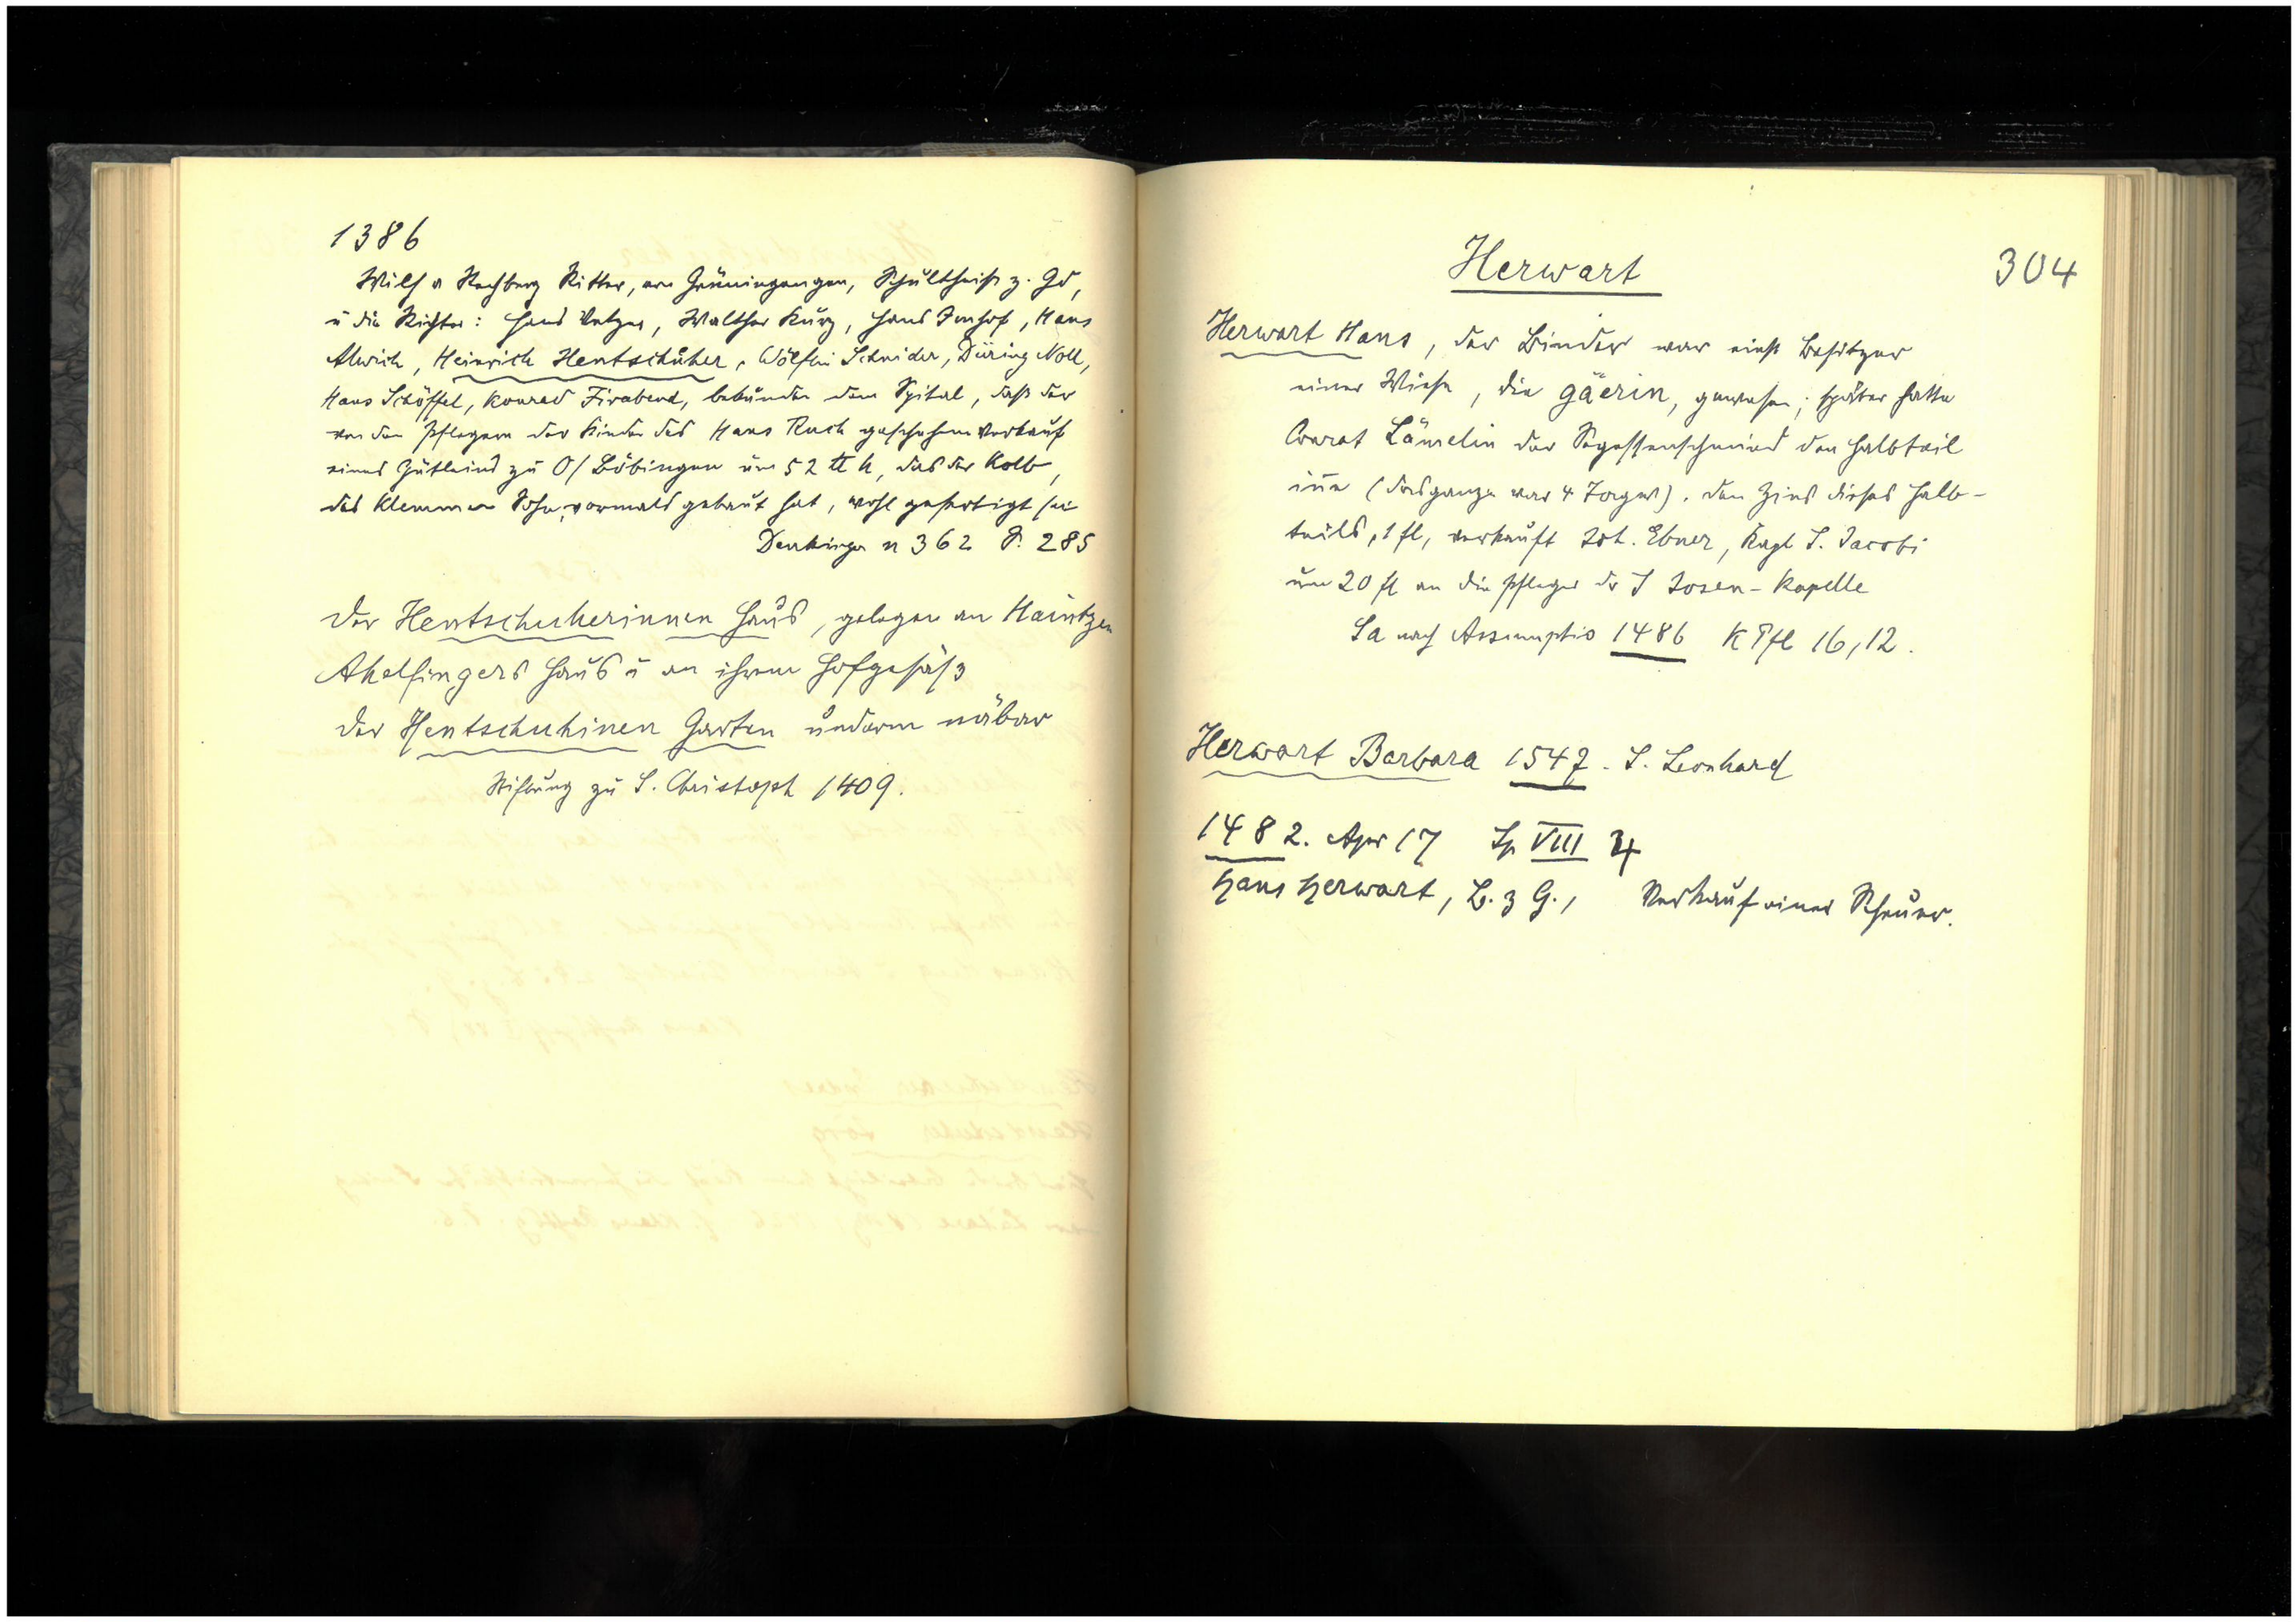 1386
Wilh v Rechberg Ritter, von Gröningengen, Schultheiß z. Gd,
u die Richter: Hans Vetzer, Walther Kurz, Hans Imhof, Hans
Alwich, Heinrich Hentschůher, Wölflin Schnider, Düring Noll,
Hans Schöffel, Konrad Firabend, bekunden dem Spital, daß der
von den Pflegern der Kinder des Hans Ruch geschehene Verkauf
eines Gütleins zu O/Böbingen um 52 ℔ h, das der Kolb,
des Klemmen Sohn, vormals gebaut hat, wohl gefertigt sei
Denkinger n 362 S. 285
Der Hentschuherinnen Haus, gelegen an Haintzen
Ahelfingers Haus u an ihrem Hofgesäß
der Hentschuhinen Garten underm näbar
Stiftung zu S. Christoph 1409.
Herwart
304
Herwart Hans, der Binder war einst Besitzer
einer Wiese, die gäerin, gewesen; später hatte
Conrat Lämelin der Segessenschmied den Halbteil
iñe (das ganze war 4 Tagw). Den Zins dieses Halb-
teils, 1 fl, verkauft Joh. Ebner, Kapl S. Jacobi
um 20 fl an die Pfleger der S Josen-Kapelle
Sa nach Assumptio 1486 K Pfl 16,12.
Herwart Barbara 1547. S. Leonhard
1482. Apr 17 Sp VIII 4
Hans Herwart, B. z G., Verkauf einer Scheuer.